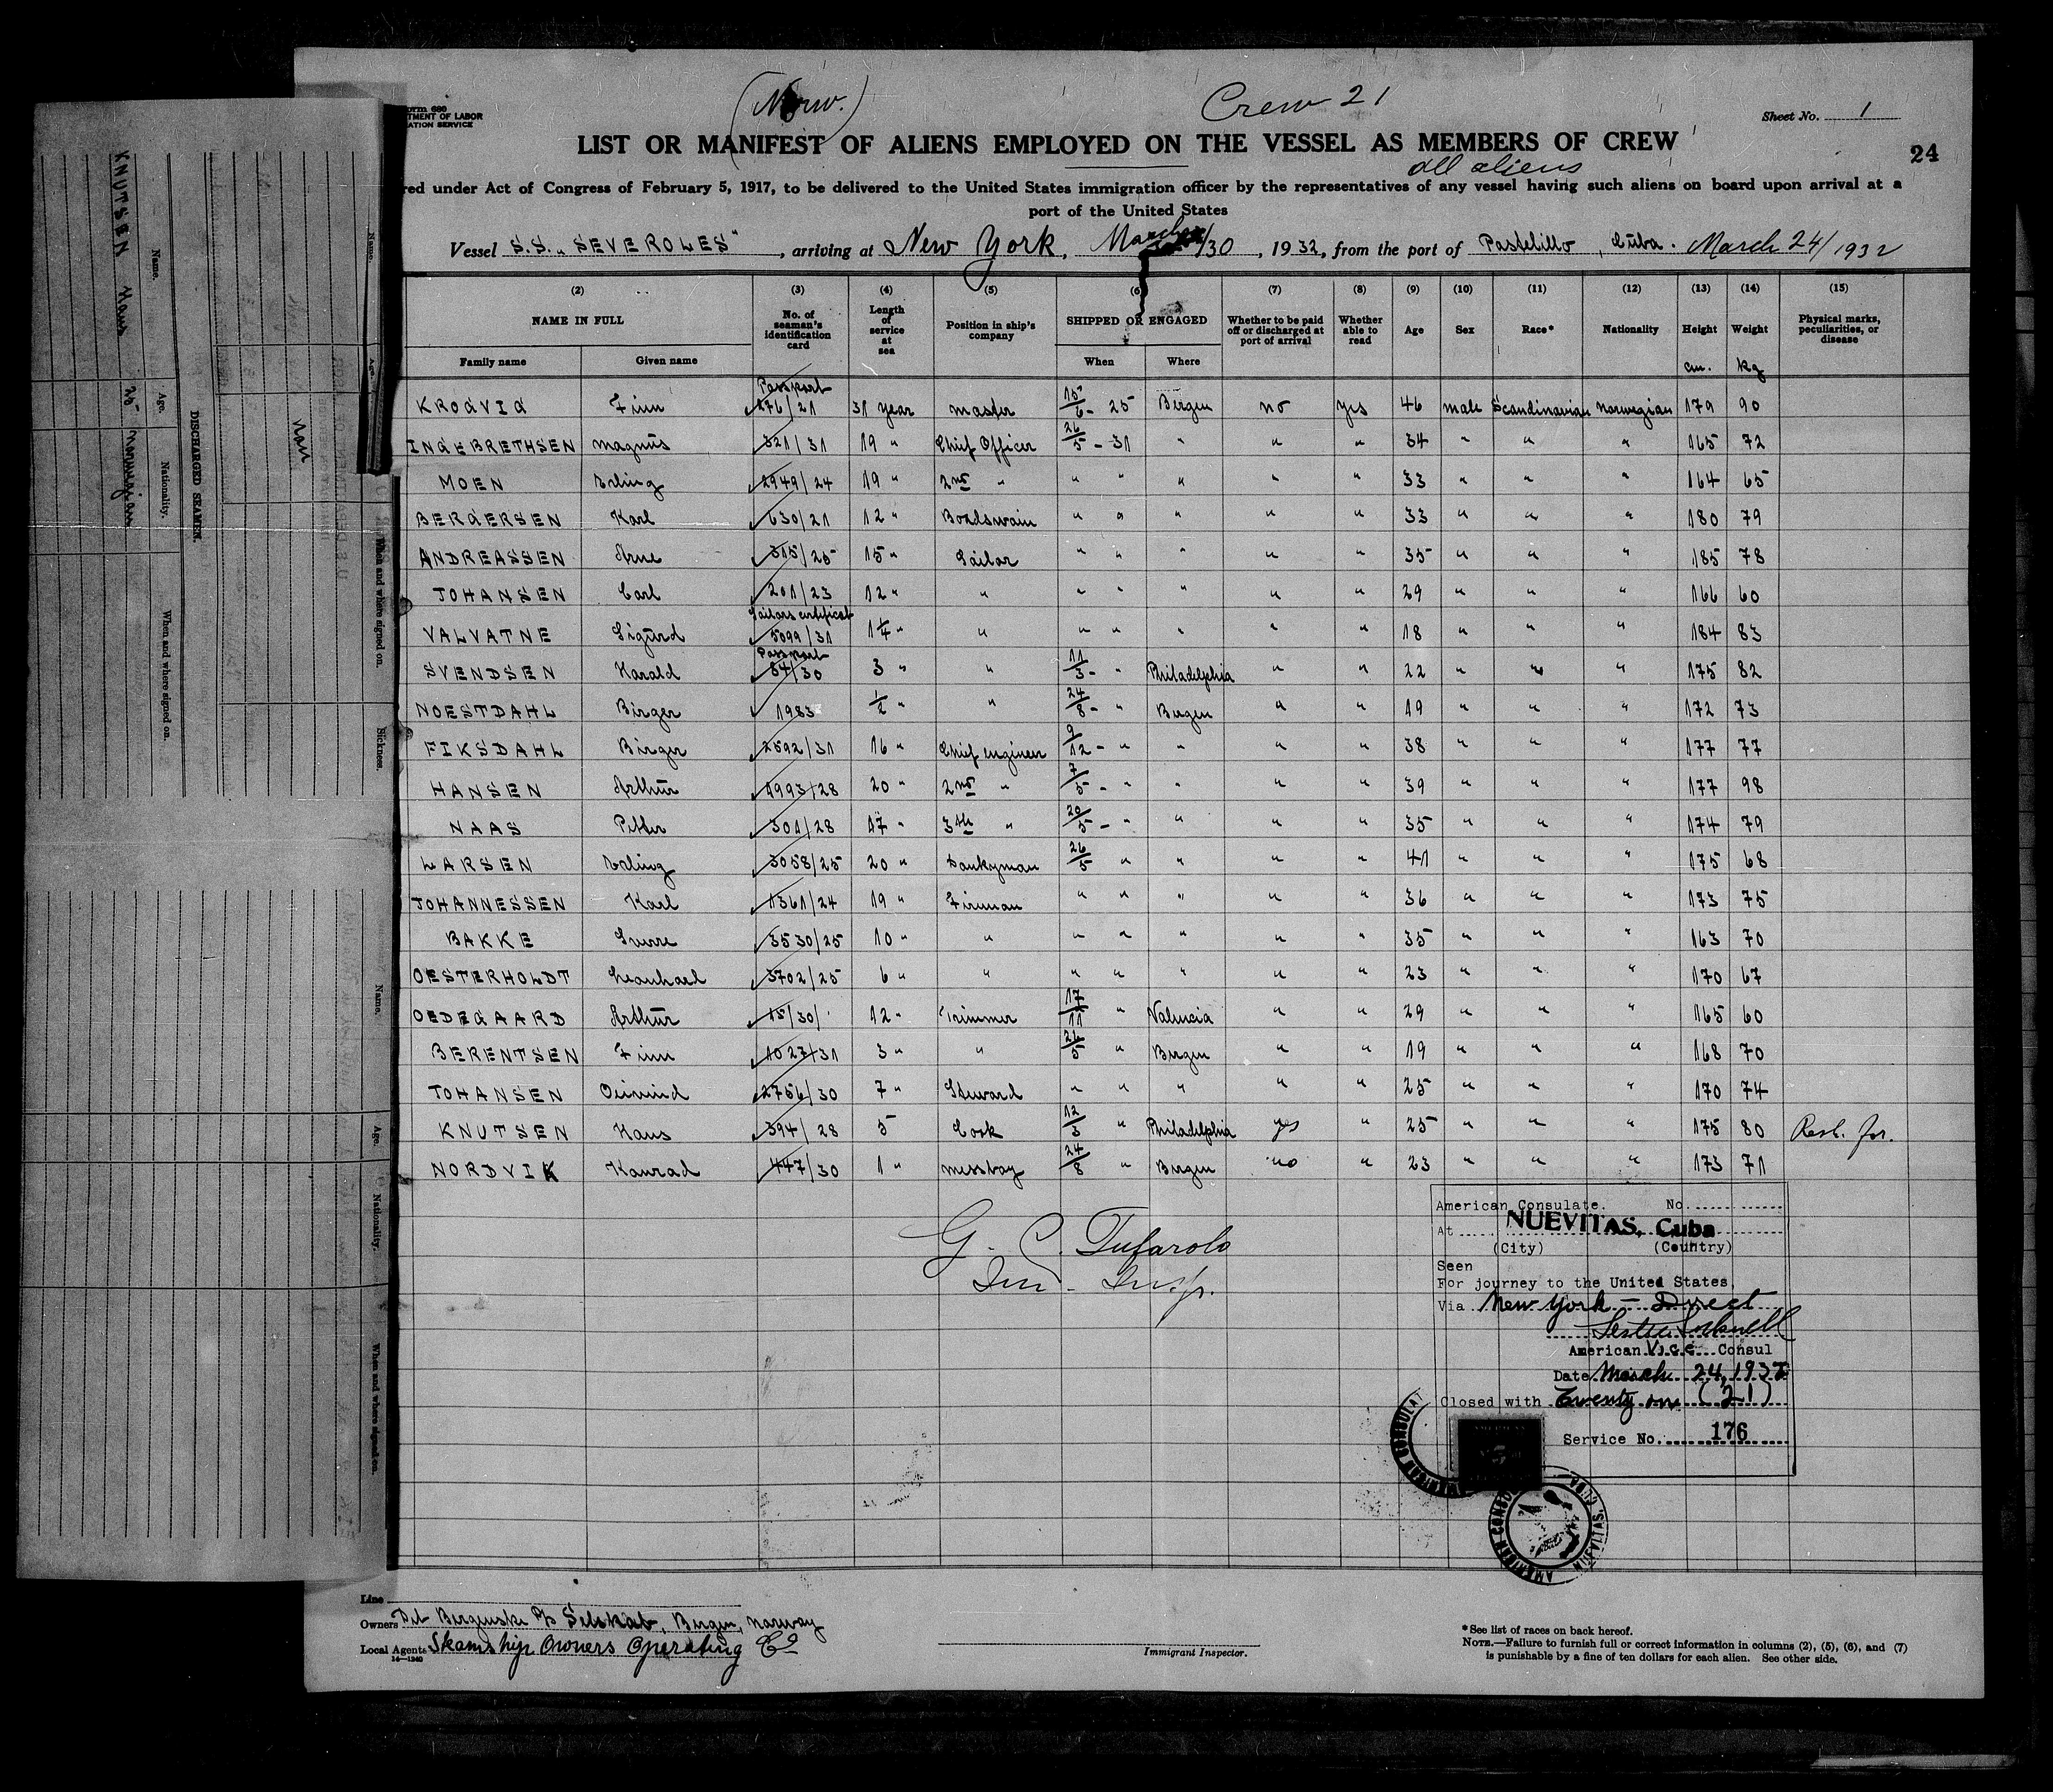 (Norw.)
Crew 21
Form 680
TMENT OF LABOR
ATION SERVICE
Sheet No. 1
LIST OR MANIFEST OF ALIENS EMPLOYED ON THE VESSEL AS MEMBERS OF CREW
24
all aliens
red under Act of Congress of February 5, 1917, to be delivered to the United States immigration officer by the representatives of any vessel having such aliens on board upon arrival at a
port of the United States
Vessel S.S. "SEVEROLES", arriving at New York, March /30, 1932, from the port of Pastelillo, Cuba. March 24/1932
(2) (3) (4) (5) (6) (7) (8) (9) (10) (11) (12) (13) (14) (15)
NAME IN FULL No. of seaman's identification card Length of service at sea Position in ship's company SHIPPED OR ENGAGED Whether to be paid off or discharged at port of arrival Whether able to read Age Sex Race* Nationality Height Weight Physical marks, peculiarities, or disease
Family name Given name When Where cm. kg
Passport
KROGVIG Finn 276/21 31 year master 15/6 - 25 Bergen no yes 46 male Scandinavian norwegian 179 90
INGEBRETHSEN magnus 321/31 19 " Chief Officer 26/5 - 31 " " " 34 " " " 165 72
MOEN Erling 2949/24 19 " 2nd " " " " " " 33 " " " 164 65
BERGERSEN Karl 630/21 12 " Boadswain " " " " " 33 " " " 180 79
ANDREASSEN Arne 315/25 15 " Sailor " " " " " 35 " " " 185 78
JOHANSEN Carl 201/23 12 " " " " " " " 29 " " " 166 60
Sailors certificat
VALVATNE Sigurd 5099/31 1¼ " " " " " " " 18 " " " 184 83
Passport
SVENDSEN Harald 84/30 3 " " 11/3 - " Philadelphia " " 22 " " " 175 82
NOESTDAHL Birger 1983 ½ " " 24/8 - " Bergen " " 19 " " " 172 73
FIKSDAHL Birger 2592/31 16 " Chief engineer 9/12 - " " " " 38 " " " 177 77
HANSEN Arthur 1993/28 20 " 2nd " 7/5 - " " " " 39 " " " 177 98
NAAS Petter 301/28 17 " 3th " 20/5 - " " " " 35 " " " 174 79
LARSEN Erling 3058/25 20 " Dankyman 26/5 " " " " 41 " " " 175 68
JOHANNESSEN Karl 1361/24 19 " Fireman " " " " " 36 " " " 173 75
BAKKE Sverre 3530/25 10 " " " " " " " 35 " " " 163 70
OESTERHOLDT Leonhard 3702/25 6 " " " " " " " 23 " " " 170 67
OEDEGAARD Arthur 15/30/ 12 " Trimmer 17/11 " Valencia " " 29 " " " 165 60
BERENTSEN Finn 1027/31 3 " " 26/5 " Bergen " " 19 " " " 168 70
JOHANSEN Oeivind 2756/30 7 " Steward " " " " " 25 " " " 170 74
KNUTSEN Hans 394/28 5 Cook 12/3 " Philadelphia yes " 25 " " " 175 80
NORDVIK Konrad 447/30 1 " messboy 24/8 " Bergen no " 23 " " " 173 71
G. C. Tufarolo
Imm. Insp.
American Consulate. No.
At NUEVITAS, Cuba
(City) (Country)
Seen
For journey to the United States,
Via New York - Direct
American Vice Consul
Date March 24, 1932
Closed with Twenty one (21)
Service No. 176
AMERICAN CONSULAT
AMERICAN CONSUL NUEVITAS, CUBA
Line
Owners Det Bergenske D/s Selskab, Bergen, Norway
Local Agents Steamship Owners Operating Co
14—1240
Immigrant Inspector.
*See list of races on back hereof.
NOTE.—Failure to furnish full or correct information in columns (2), (5), (6), and (7)
is punishable by a fine of ten dollars for each alien. See other side.
DISCHARGED SEAMEN.
Name. Age. Nationality. When and where signed on.
KNUTSEN Hans 25 norwegian
Name. Age. When and where signed on. Sickness.
Name. Age. Nationality. When and where signed on.